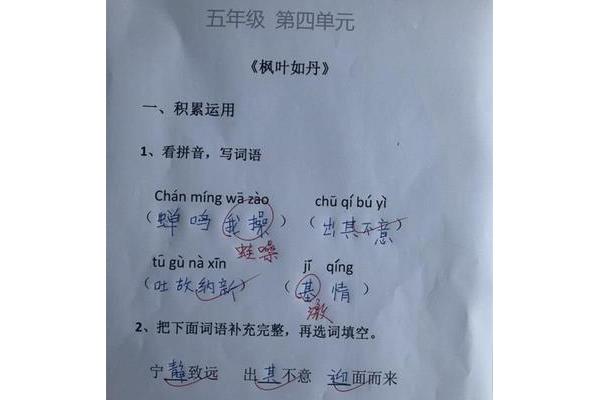 五年级 第四单元
《枫叶如丹》
一、积累运用
1、看拼音，写词语
Chán míng wā zào chū qí bú yì
（蝉鸣我操）（出其不意）
蛙噪
tū gù nà xīn jī qíng
（吐故纳新）（基情）
激
2、把下面词语补充完整，再选词填空。
宁静致远 出其不意 迎面而来